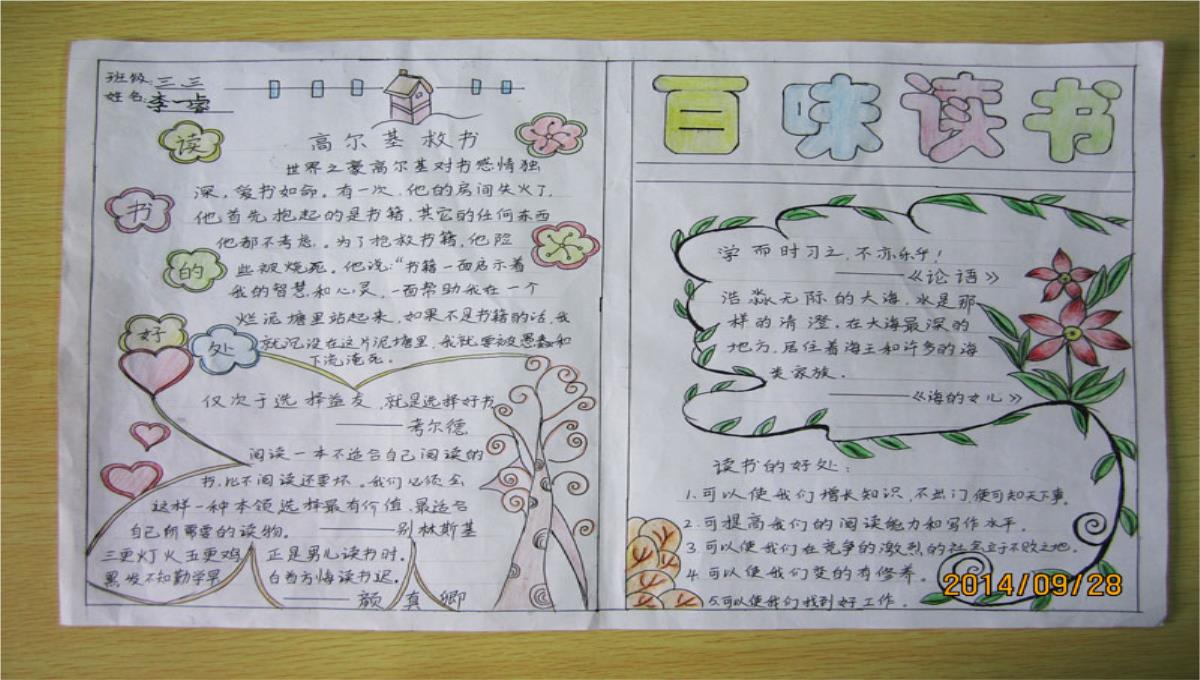 班级:三.三
姓名:李一睿
读
书
的
好
处
高尔基救书
世界之豪高尔基对书感情独
深，爱书如命。有一次，他的房间失火了，
他首先抱起的是书籍，其它的任何东西
他都不考虑。为了抢救书籍，他险
些被烧死。他说：“书籍一面启示着
我的智慧和心灵，一面帮助我在一个
烂泥塘里站起来，如果不是书籍的话，我
就沉没在这片泥塘里，我就要被愚蠢和
下流淹死。
仅次于选择益友，就是选择好书
——考尔德
阅读一本不适合自己阅读的
书，比不阅读还要坏。我们必须会
这样一种本领，选择最有价值、最适合
自己所需要的读物。 ——别林斯基
三更灯火五更鸡，正是男儿读书时。
黑发不知勤学早，白首方悔读书迟。
——颜真卿
百味读书
学而时习之，不亦乐乎！
——《论语》
浩淼无际的大海，水是那
样的清澄，在大海最深的
地方，居住着海王和许多的海
类家族。
——《海的女儿》
读书的好处：
1.可以使我们增长知识，不出门便可知天下事。
2.可提高我们的阅读能力和写作水平。
3.可以使我们在竞争的激烈的社会立于不败之地。
4.可以使我们变的有修养。
5.可以使我们找到好工作。
2014/09/28